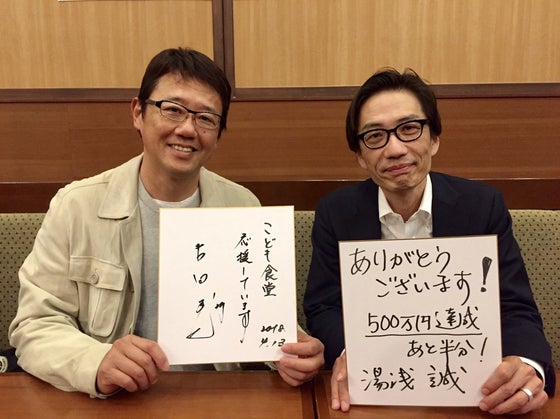 こども食堂
応援しています
2018.
4.13
ありがとう
ございます！
500万円達成
あと半分！
湯浅 誠